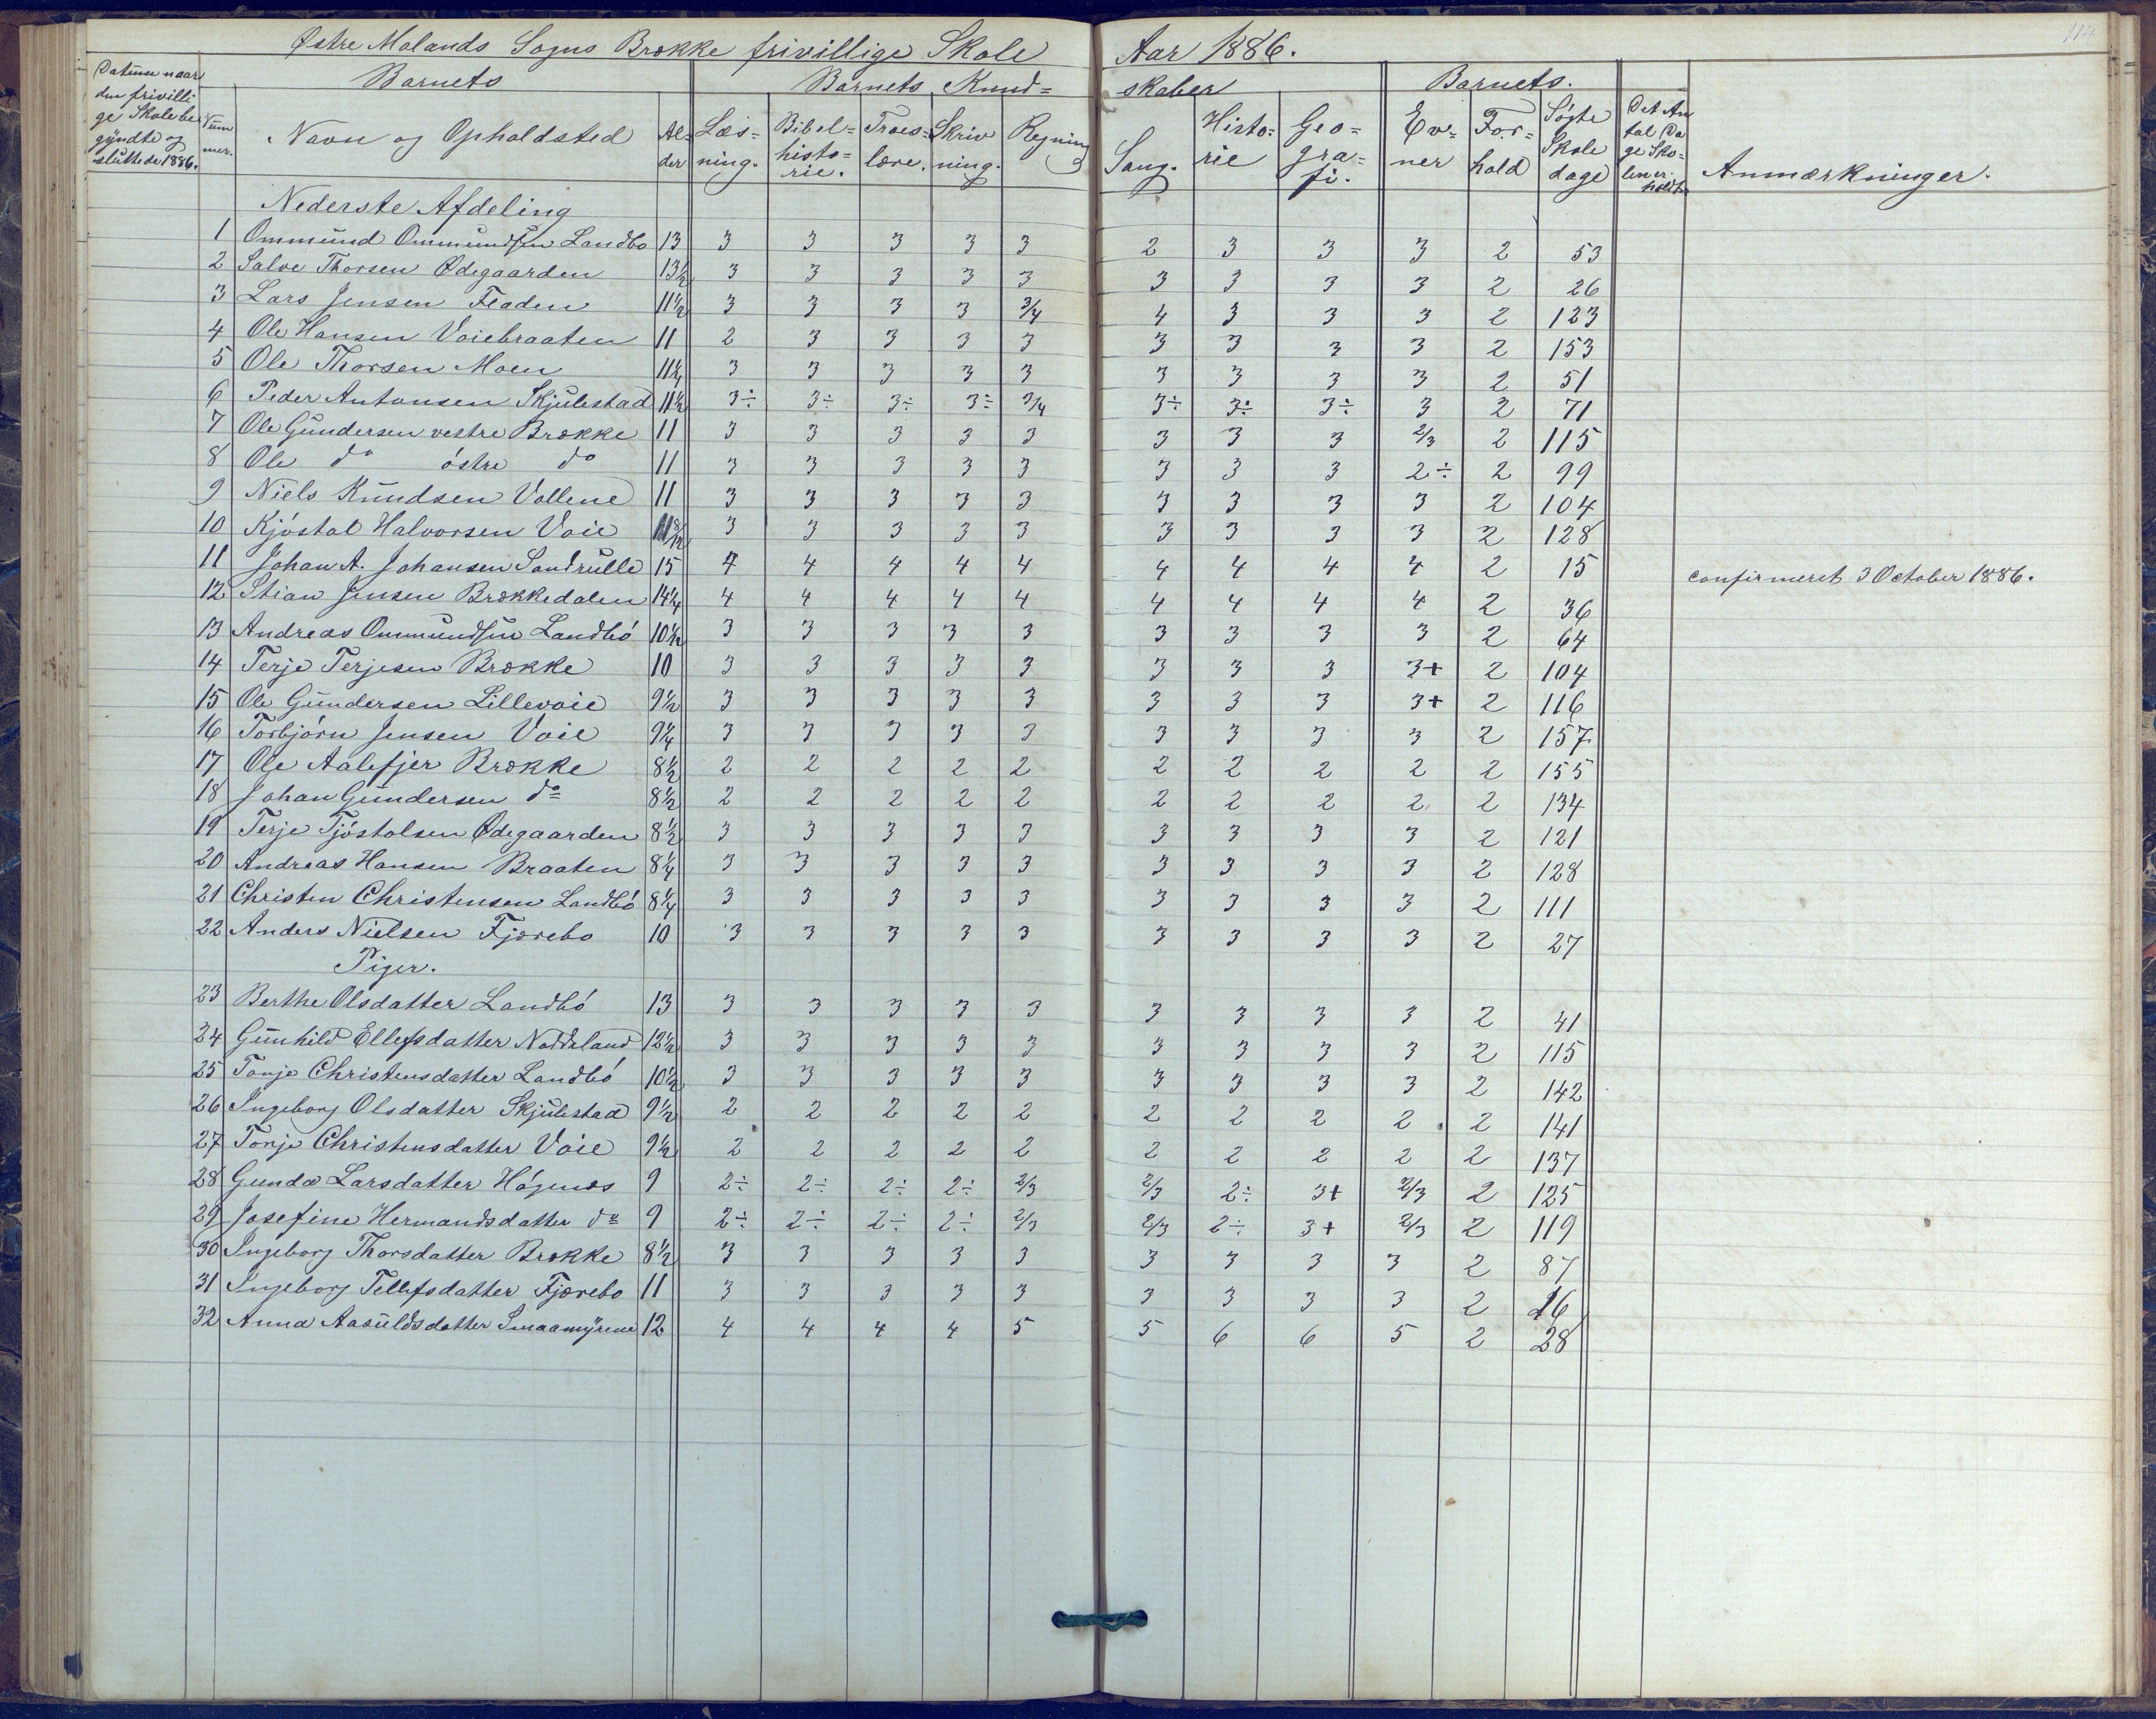 Østre Molands Sogns Brække frivillige Skole Aar 1886.
114
Datum naar den frivillige Skole begyndte og sluttede 1886.
Nummer.
Barnets
Navn og Opholdsted
Alder
Barnets Kundskaber
Læsning.
Bibelhistorie.
Troeslære.
Skrivning.
Regning
Sang.
Historie
Geografi.
Barnets.
Evner
Forhold
Søgte Skoledage
Det Antal Dage Skolen er holdt
Anmærkninger.
Nederste Afdeling
1 Ommund Ommundsen Landbø 13 3 3 3 3 3 2 3 3 3 2 53
2 Salve Thorsen Ødegaarden 13½ 3 3 3 3 3 3 3 3 3 2 26
3 Lars Jensen Fladen 11½ 3 3 3 3 3/4 4 3 3 3 2 123
4 Ole Hansen Voiebraaten 11 2 3 3 3 3 3 3 3 3 2 153
5 Ole Thorsen Moen 11¼ 3 3 3 3 3 3 3 3 3 2 51
6 Peder Antonsen Skjulestad 11½ 3÷ 3÷ 3÷ 3÷ 3/4 3÷ 3÷ 3÷ 3 2 71
7 Ole Gundersen vestre Brække 11 3 3 3 3 3 3 3 3 2/3 2 115
8 Ole do østre do 11 3 3 3 3 3 3 3 3 2÷ 2 99
9 Niels Knudsen Vollene 11 3 3 3 3 3 3 3 3 3 2 104
10 Kjøstol Halvorsen Voie 11 8/12 3 3 3 3 3 3 3 3 3 2 128
11 Johan A. Johansen Sandrulle 15 4 4 4 4 4 4 4 4 4 2 15 confirmeret 3 October 1886.
12 Stian Jensen Brækkedalen 14¼ 4 4 4 4 4 4 4 4 4 2 36
13 Andreas Ommundsen Landbø 10½ 3 3 3 3 3 3 3 3 3 2 64
14 Terje Terjesen Brække 10 3 3 3 3 3 3 3 3 3+ 2 104
15 Ole Gundersen Lillevoie 9½ 3 3 3 3 3 3 3 3 3+ 2 116
16 Torbjørn Jensen Voie 9¼ 3 3 3 3 3 3 3 3 3 2 157
17 Ole Aalefjer Brække 8½ 2 2 2 2 2 2 2 2 2 2 155
18 Johan Gundersen do 8½ 2 2 2 2 2 2 2 2 2 2 134
19 Terje Tjøstolsen Ødegaarden 8½ 3 3 3 3 3 3 3 3 3 2 121
20 Andreas Hansen Braaten 8¼ 3 3 3 3 3 3 3 3 3 2 128
21 Christen Christensen Landbø 8¼ 3 3 3 3 3 3 3 3 3 2 111
22 Anders Nielsen Fjærebo 10 3 3 3 3 3 3 3 3 3 2 27
Piger.
23 Berthe Olsdatter Landbø 13 3 3 3 3 3 3 3 3 3 2 41
24 Gunhild Ellefsdatter Noddeland 12½ 3 3 3 3 3 3 3 3 3 2 115
25 Tonje Christensdatter Landbø 10½ 3 3 3 3 3 3 3 3 3 2 142
26 Ingeborg Olsdatter Skjulestad 9½ 2 2 2 2 2 2 2 2 2 2 141
27 Tonje Christensdatter Voie 9½ 2 2 2 2 2 2 2 2 2 2 137
28 Gunda Larsdatter Høgenæs 9 2÷ 2÷ 2÷ 2÷ 2/3 2/3 2÷ 3+ 2/3 2 125
29 Josefine Hermandsdatter do 9 2÷ 2÷ 2÷ 2÷ 2/3 2/3 2÷ 3+ 2/3 2 119
30 Ingeborg Thorsdatter Brække 8½ 3 3 3 3 3 3 3 3 3 2 87
31 Ingeborg Tellefsdatter Fjærebo 11 3 3 3 3 3 3 3 3 3 2 16
32 Anna Aasuldsdatter Smaamyrene 12 4 4 4 4 5 5 6 6 5 2 28